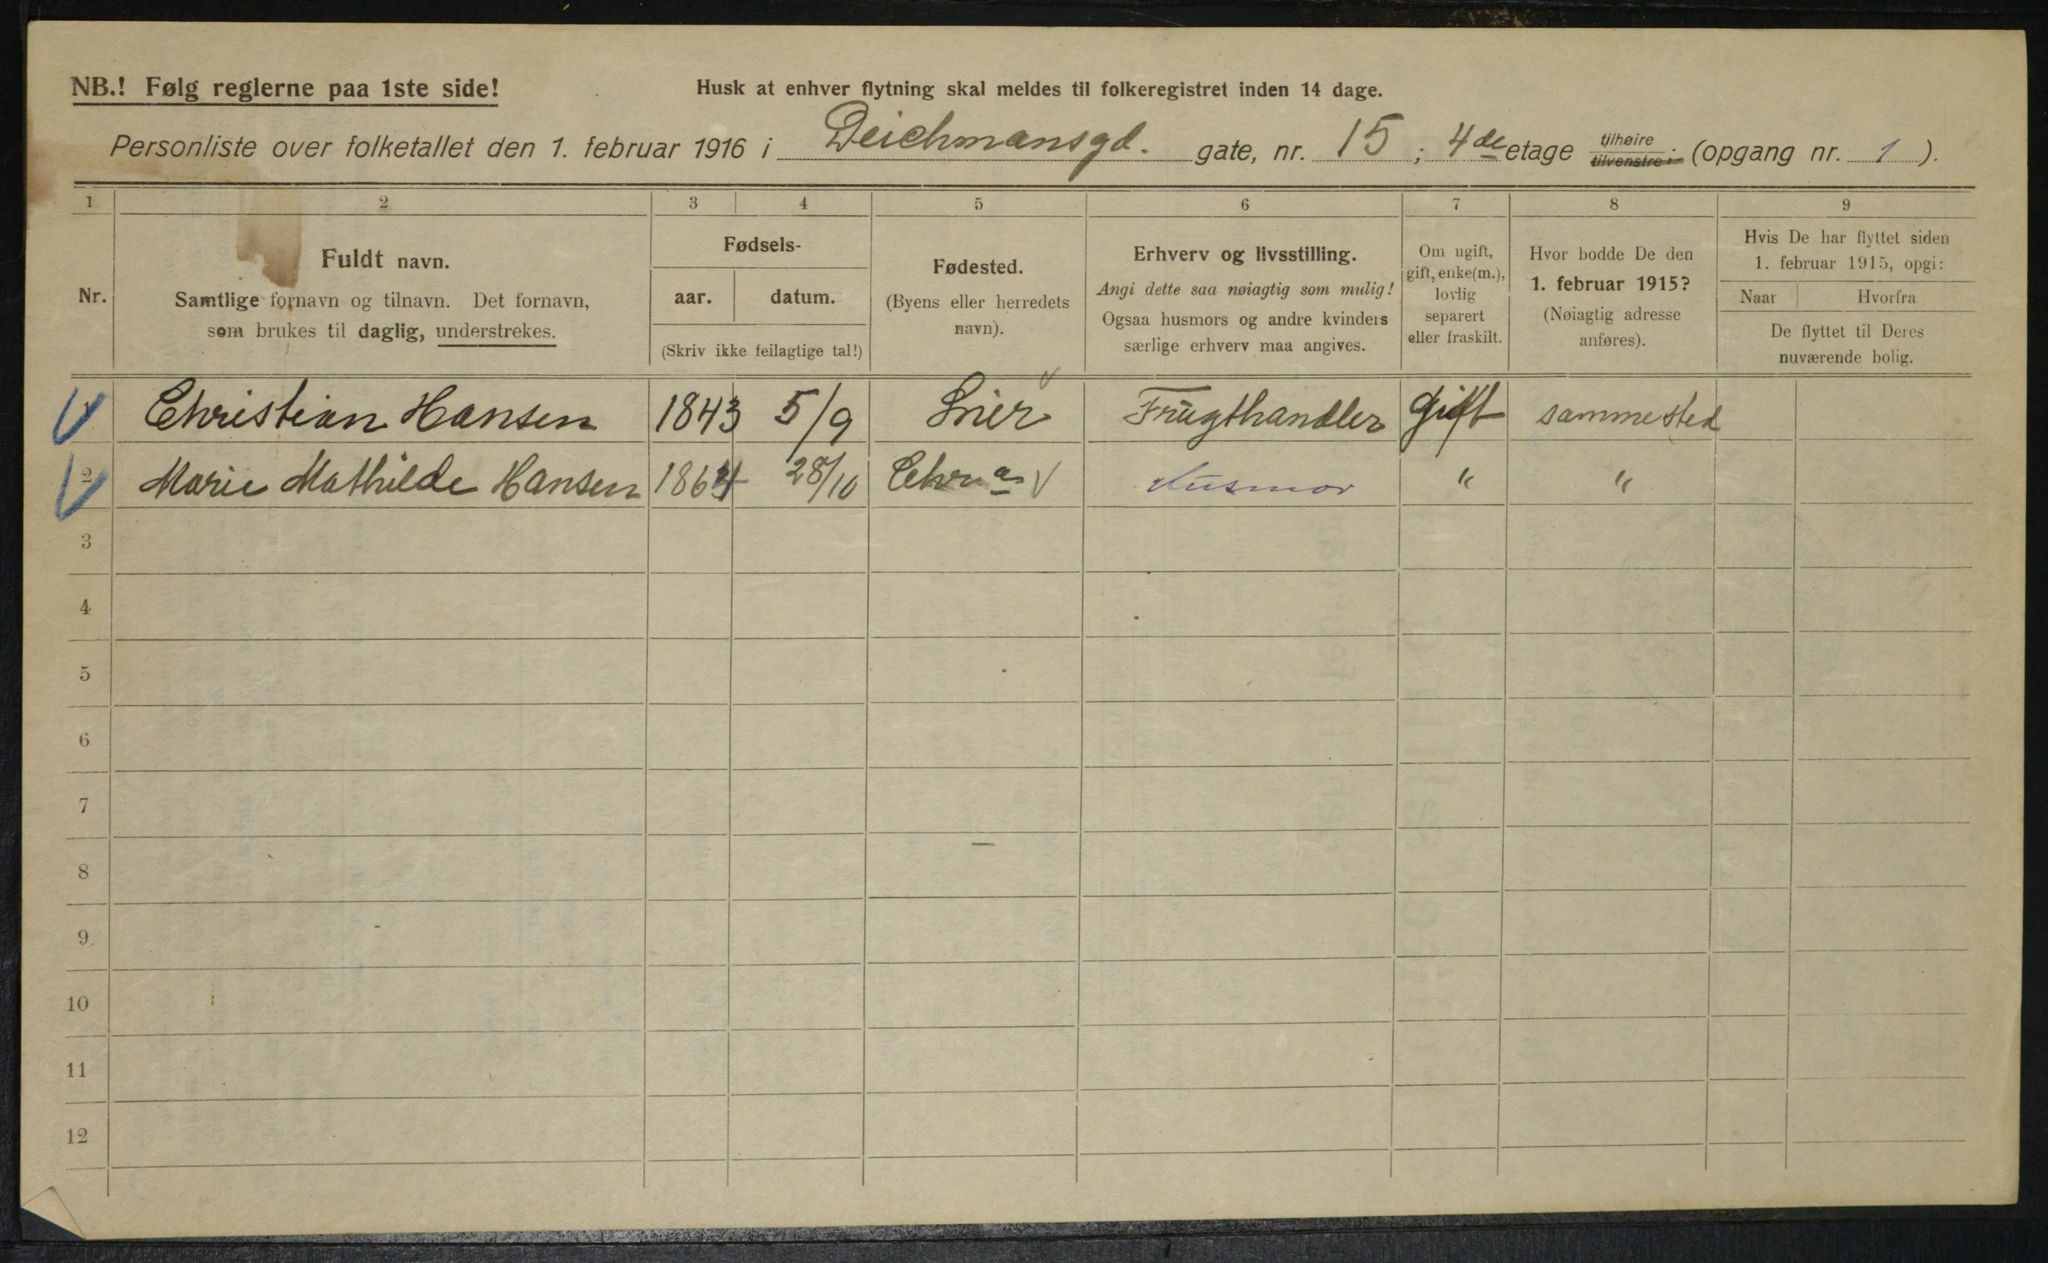 NB.! Følg reglerne paa 1ste side!
Husk at enhver flytning skal meldes til folkeregistret inden 14 dage.
Personliste over folketallet den 1. februar 1916 i Deichmansgd. gate, nr. 15; 4de etage tilhøire tilvenstre; (opgang nr. 1).
1 2 3 4 5 6 7 8 9
Nr.
Fuldt navn.
Samtlige fornavn og tilnavn. Det fornavn,
som brukes til daglig, understrekes.
Fødsels-
aar. datum.
(Skriv ikke feilagtige tal!)
Fødested.
(Byens eller herredets
navn).
Erhverv og livsstilling.
Angi dette saa nøiagtig som mulig!
Ogsaa husmors og andre kvinders
særlige erhverv maa angives.
Om ugift,
gift, enke(m.),
lovlig
separert
eller fraskilt.
Hvor bodde De den
1. februar 1915?
(Nøiagtig adresse
anføres).
Hvis De har flyttet siden
1. februar 1915, opgi:
Naar Hvorfra
De flyttet til Deres
nuværende bolig.
1 Christian Hansen 1843 5/9 Lier Frugthandler gift sammested
2 Marie Mathilde Hansen 1864 28/10 Chra Husmor " "
3
4
5
6
7
8
9
10
11
12